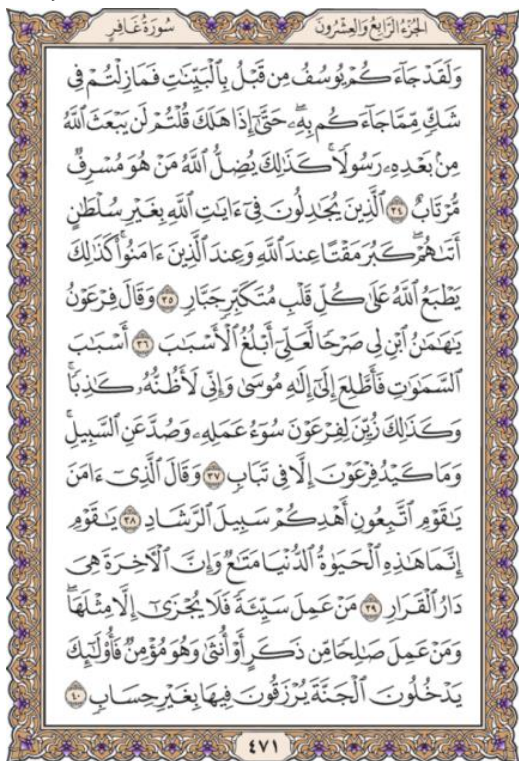 الجزء الرابع والعشرون سورة غافر
وَلَقَدۡ جَآءَكُمۡ يُوسُفُ مِن قَبۡلُ بِٱلۡبَيِّنَٰتِ فَمَا زِلۡتُمۡ فِي
شَكّٖ مِّمَّا جَآءَكُم بِهِۦۖ حَتَّىٰٓ إِذَا هَلَكَ قُلۡتُمۡ لَن يَبۡعَثَ ٱللَّهُ
مِنۢ بَعۡدِهِۦ رَسُولٗاۚ كَذَٰلِكَ يُضِلُّ ٱللَّهُ مَنۡ هُوَ مُسۡرِفٞ
مُّرۡتَابٌ ٣٤ ٱلَّذِينَ يُجَٰدِلُونَ فِيٓ ءَايَٰتِ ٱللَّهِ بِغَيۡرِ سُلۡطَٰنٍ
أَتَىٰهُمۡۖ كَبُرَ مَقۡتًا عِندَ ٱللَّهِ وَعِندَ ٱلَّذِينَ ءَامَنُواْۚ كَذَٰلِكَ
يَطۡبَعُ ٱللَّهُ عَلَىٰ كُلِّ قَلۡبِ مُتَكَبِّرٖ جَبَّارٖ ٣٥ وَقَالَ فِرۡعَوۡنُ
يَٰهَٰمَٰنُ ٱبۡنِ لِي صَرۡحٗا لَّعَلِّيٓ أَبۡلُغُ ٱلۡأَسۡبَٰبَ ٣٦ أَسۡبَٰبَ
ٱلسَّمَٰوَٰتِ فَأَطَّلِعَ إِلَىٰٓ إِلَٰهِ مُوسَىٰ وَإِنِّي لَأَظُنُّهُۥ كَٰذِبٗاۚ
وَكَذَٰلِكَ زُيِّنَ لِفِرۡعَوۡنَ سُوٓءُ عَمَلِهِۦ وَصُدَّ عَنِ ٱلسَّبِيلِۚ
وَمَا كَيۡدُ فِرۡعَوۡنَ إِلَّا فِي تَبَابٖ ٣٧ وَقَالَ ٱلَّذِيٓ ءَامَنَ
يَٰقَوۡمِ ٱتَّبِعُونِ أَهۡدِكُمۡ سَبِيلَ ٱلرَّشَادِ ٣٨ يَٰقَوۡمِ
إِنَّمَا هَٰذِهِ ٱلۡحَيَوٰةُ ٱلدُّنۡيَا مَتَٰعٞ وَإِنَّ ٱلۡأٓخِرَةَ هِيَ
دَارُ ٱلۡقَرَارِ ٣٩ مَنۡ عَمِلَ سَيِّئَةٗ فَلَا يُجۡزَىٰٓ إِلَّا مِثۡلَهَاۖ
وَمَنۡ عَمِلَ صَٰلِحٗا مِّن ذَكَرٍ أَوۡ أُنثَىٰ وَهُوَ مُؤۡمِنٞ فَأُوْلَٰٓئِكَ
يَدۡخُلُونَ ٱلۡجَنَّةَ يُرۡزَقُونَ فِيهَا بِغَيۡرِ حِسَابٖ ٤٠
٤٧١